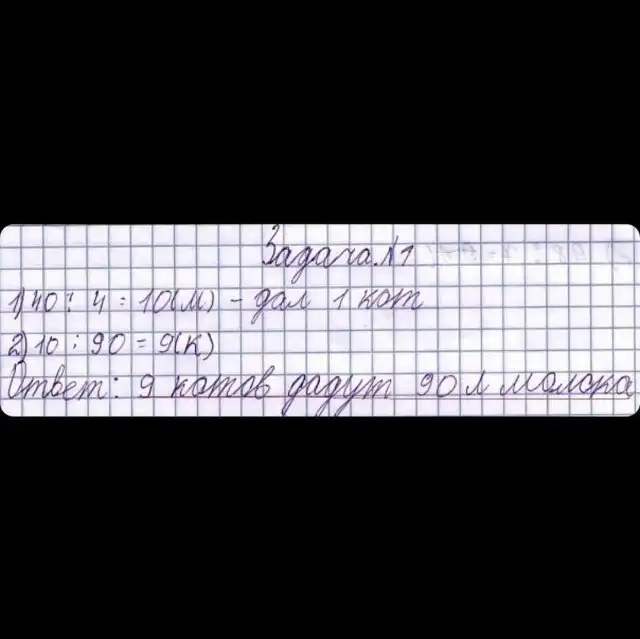 Задача №1
1) 40 : 4 = 10(м) - дал 1 кот
2) 10 : 90 = 9(к)
Ответ: 9 котов дадут 90 л молока